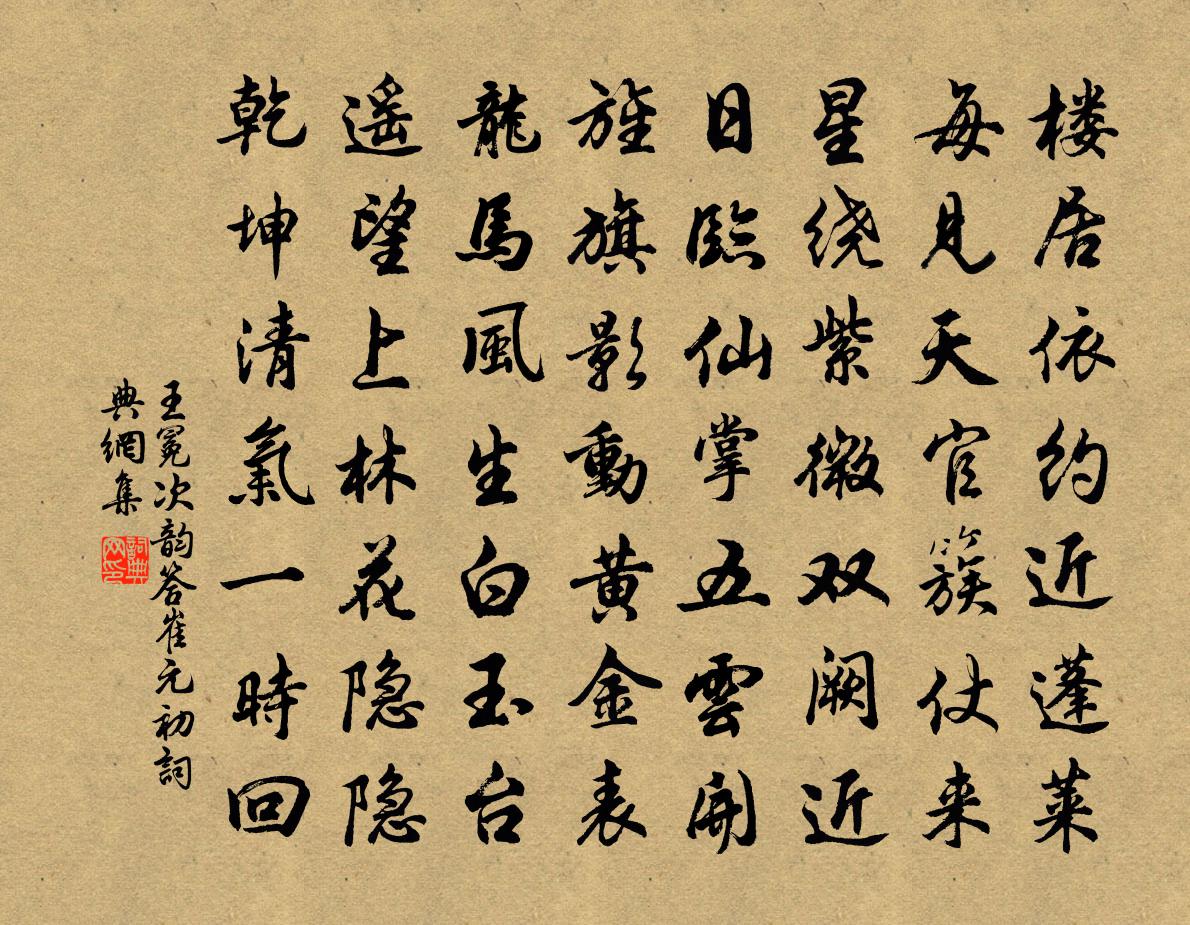 楼居依约近蓬莱
每见天官簇仗来
星绕紫微双阙近
日臨仙掌五雲開
旌旗影動黄金表
龍馬風生白玉台
遥望上林花隐隐
乾坤清氣一時回
王冕次韵答崔元初詞
典網集
詞典
网印